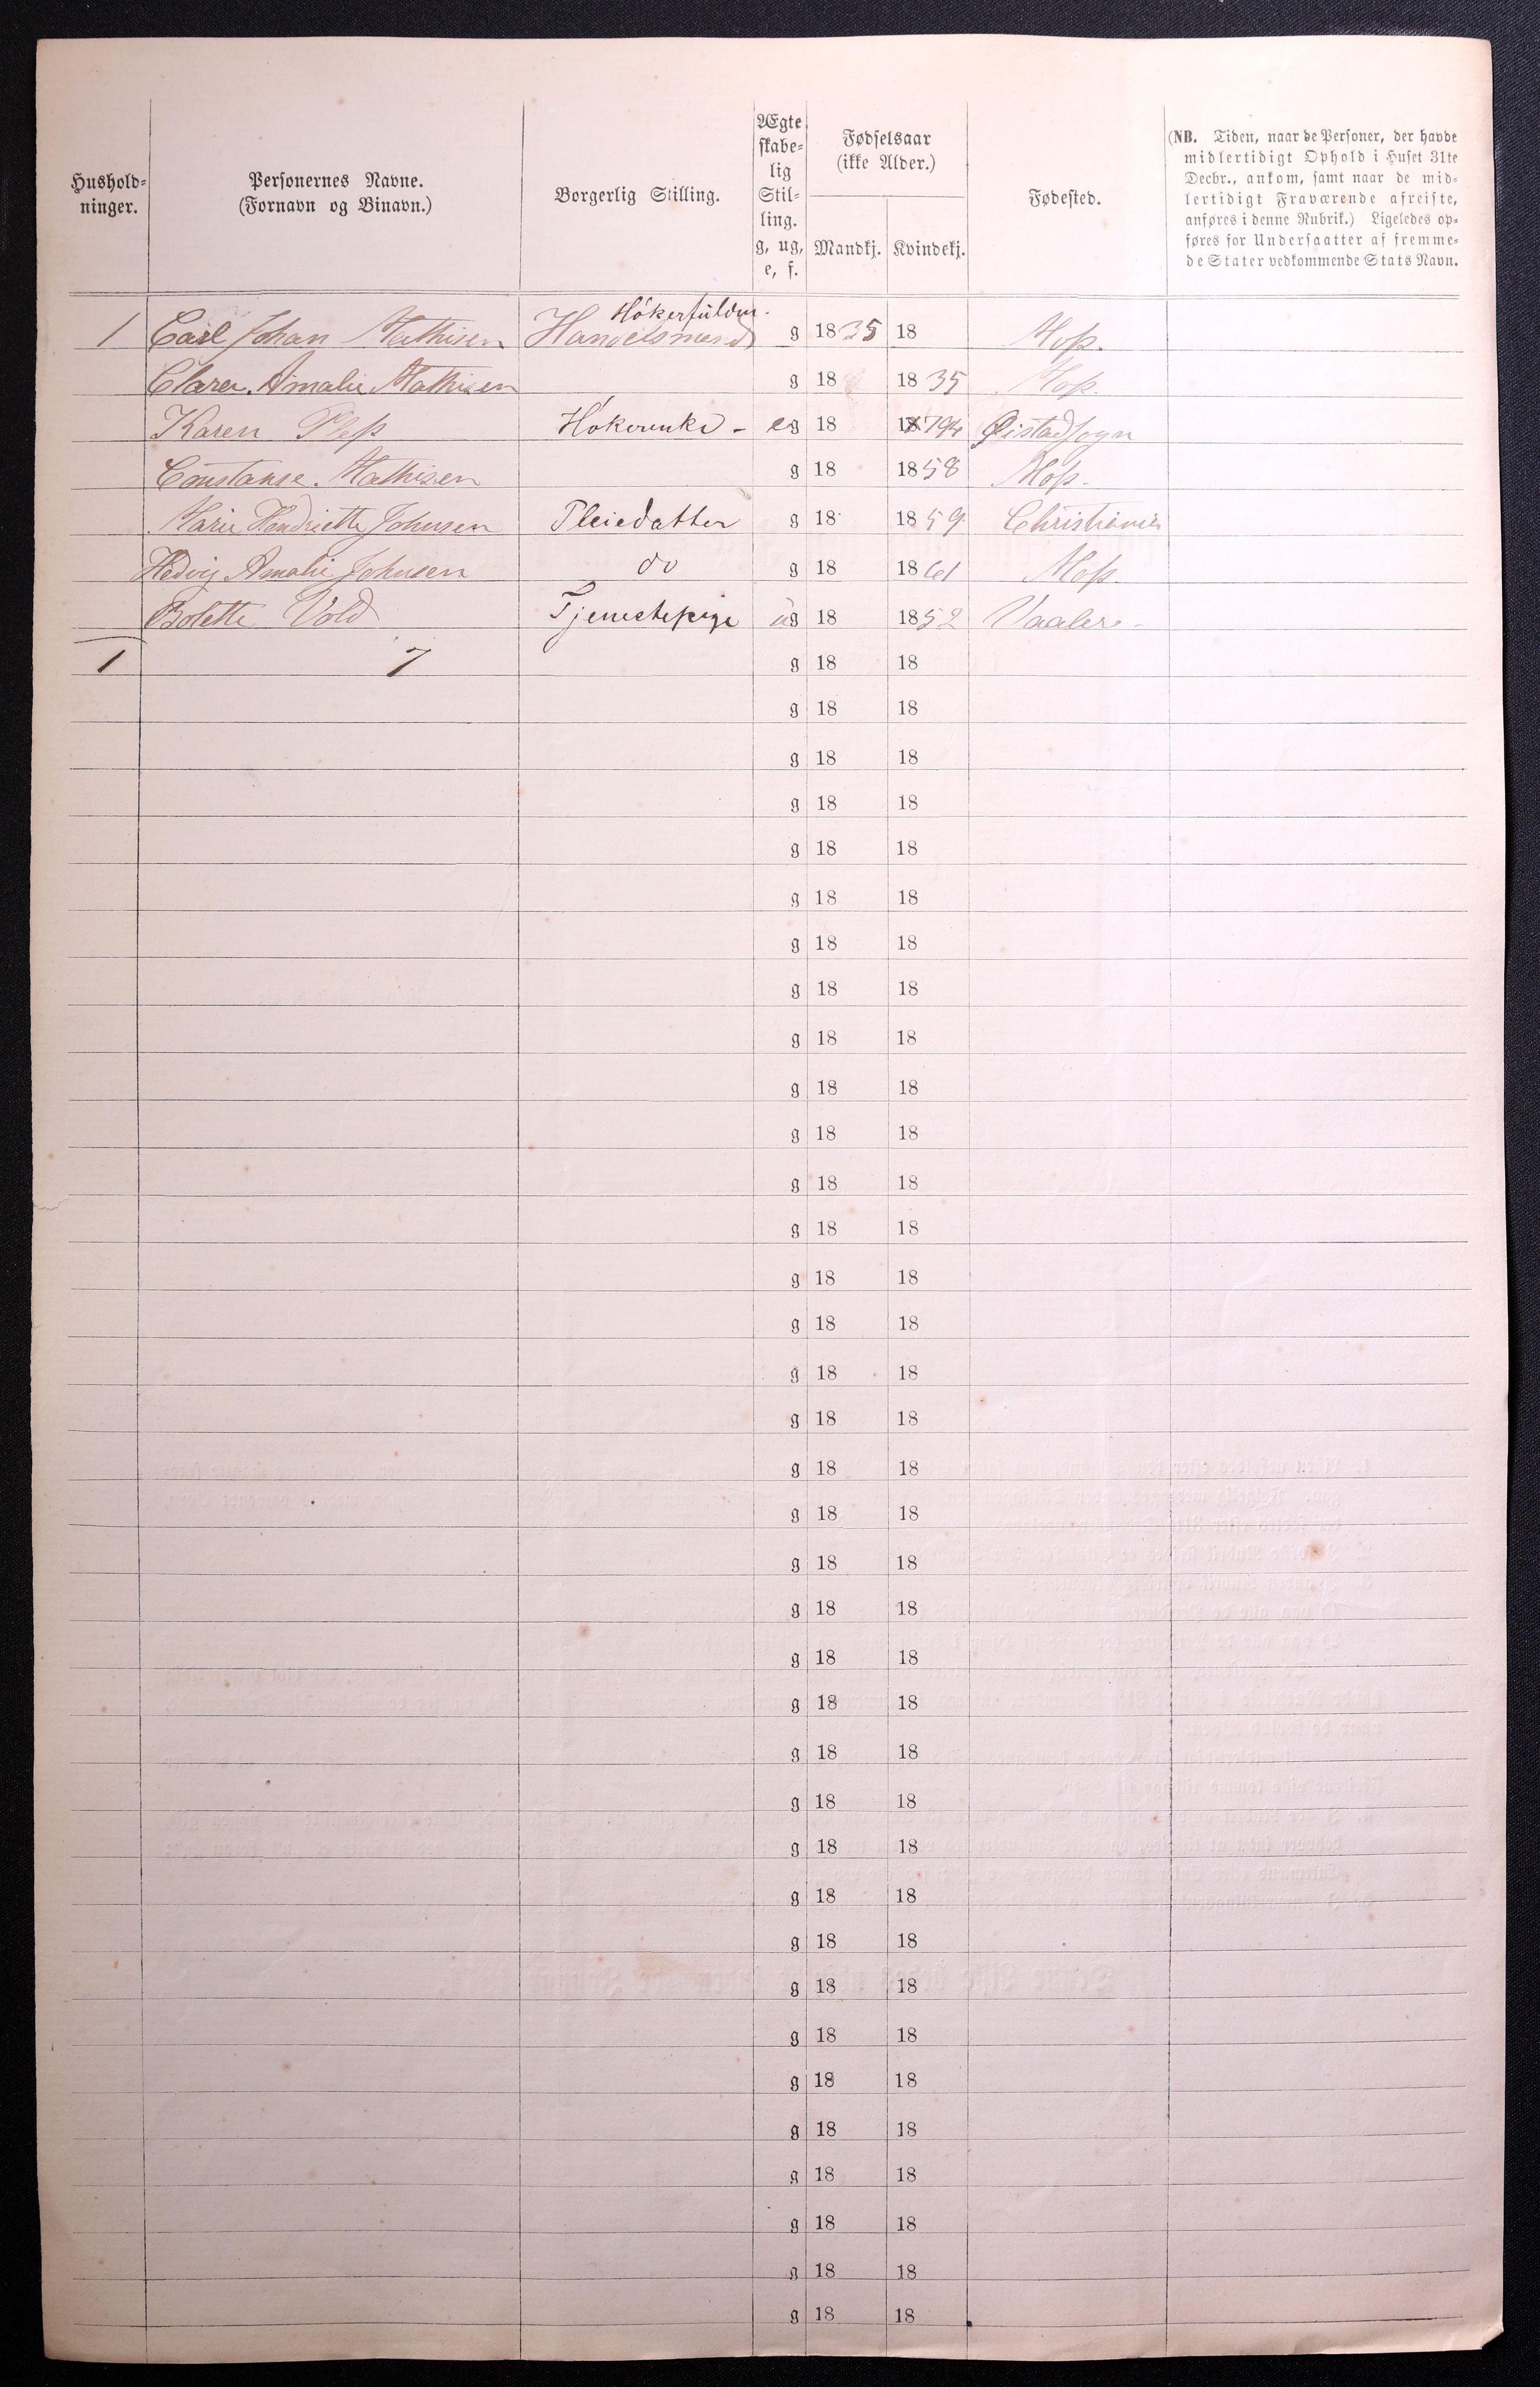 Hushold-
ninger.
Personernes Navne.
(Fornavn og Binavn.)
Borgerlig Stilling.
Ægte
skabe-
lig
Stil-
ling.
g, ug,
e, f.
Fødselsaar
(ikke Alder.)
Mandkj. Kvindekj.
Fødested.
(NB. Tiden, naar de Personer, der havde
midlertidigt Ophold i Huset 31te
Decbr., ankom, samt naar de mid-
lertidigt Fraværende afreiste,
anføres i denne Rubrik.) Ligeledes op-
føres for Undersaatter af fremme-
de Stater vedkommende Stats Navn.
1 Carl Johan Mathisen Handelsmand g 1835 18 Moss.
Clara Amalie Mathisen g 18 1835 Moss.
Karen Pless Høkerenke - eg 18 1794 Øistadsogn
Constanse Mathisen g 18 1858 Moss.
Marie Hendriette Johnsen Pleiedatter g 18 1859 Christiania
Hedvig Amalie Johnsen do g 18 1861 Moss.
Bolette Vold Tjenestepige ug 18 1852 Vaaler.
1 7 g 18 18
g 18 18
g 18 18
g 18 18
g 18 18
g 18 18
g 18 18
g 18 18
g 18 18
g 18 18
g 18 18
g 18 18
g 18 18
g 18 18
g 18 18
g 18 18
g 18 18
g 18 18
g 18 18
g 18 18
g 18 18
g 18 18
g 18 18
g 18 18
g 18 18
g 18 18
g 18 18
g 18 18
g 18 18
g 18 18
g 18 18
g 18 18
g 18 18
g 18 18
g 18 18
g 18 18